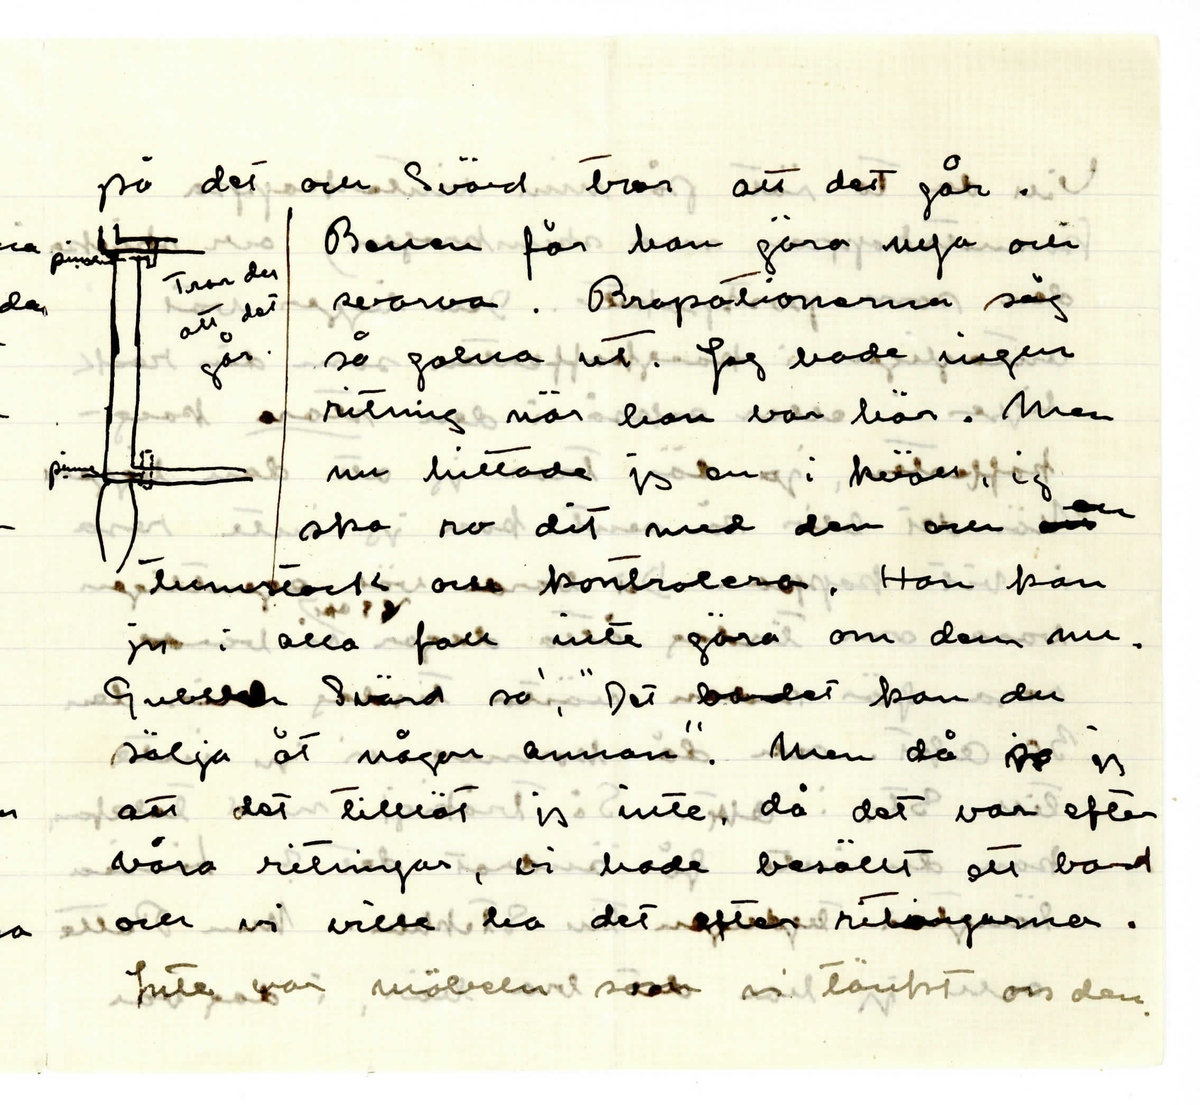 på det och Svärd tror att det går.
Benen får han göra nya och
svarva. Propotionerna såg
så galna ut. Jag hade ingen
ritning när han var här. Men
nu hittade jg en i
ska ro dit med den och en
tumstock och kontrolera. Han kan
ju i alla fall inte göra om dem nu.
Gubben Svärd sa', "Det bordet kan du
sälja åt någon annan". Men då jg
att det tillät jg inte, då det var efter
våra ritningar, vi hade beställt ett bord
och vi ville ha det efter ritningarna.
Inte var möbeln som vi tänkt oss den.
pinne
Tror du
att det
går.
pinne